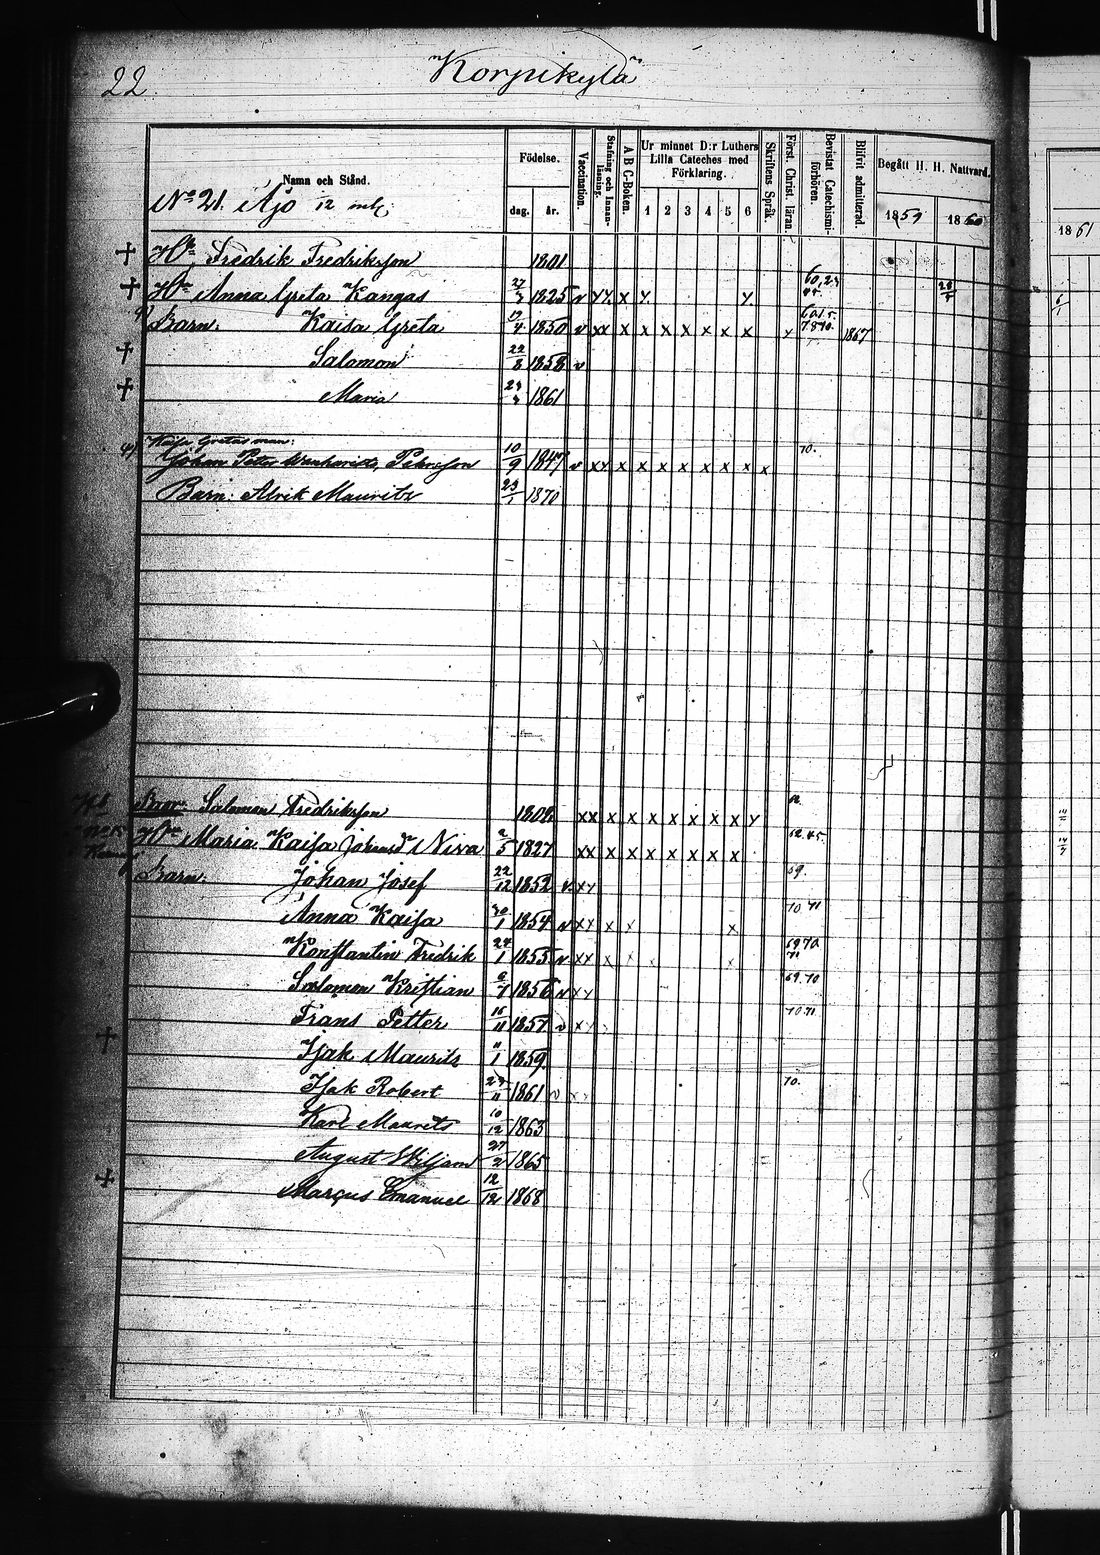 22
Korpikylä
Namn och Stånd.
Födelse.
dag. år.
Vaccination.
Stafning och Innanläsning.
A B C-Boken.
Ur minnet D:r Luthers Lilla Cateches med Förklaring.
1 2 3 4 5 6
Skriftens Språk.
Först. Christ. läran.
Bevistat Catechismi-förhören.
Blifvit admitterad.
Begått H. H. Nattvard.
1859 1860
1861
No 21. Äjo 12 mtl:
Fredrik Fredriksson 1801
Anna Greta Kangas 27/3 1825 v x x x x x
Barn: Kaisa Greta 19/4 1850 v x x x x x x x x x x 1867
Salomon 22/8 1858 v
Maria 1861
Kaisa Gretas man:
Johan Petter Petersson 10/9 1847 v x x x x x x x x x x 70.
Barn: Alrik Mauritz 23/1 1870
Salomon Fredriksson 1802 x x x x x x x x x x
Maria Kaisa Johansd Niva 2/5 1827 x x x x x x x x
Barn: Johan Josef 22/12 1852 v x x 69.
Anna Kaisa 30/1 1854 v x x x x x 70 71
Konstantin Fredrik 24/1 1855 v x x x x 69 70 71
Salomon Kristian 6/7 1856 v x x 69. 70
Frans Petter 16/11 1857 v x x 70 71
Isak Maurits 11/1 1859
Isak Robert 29/11 1861 v 70.
Karl Maurits 10/12 1863
August Wiljam 27/2 1865
Marcus Emanuel 12/12 1868